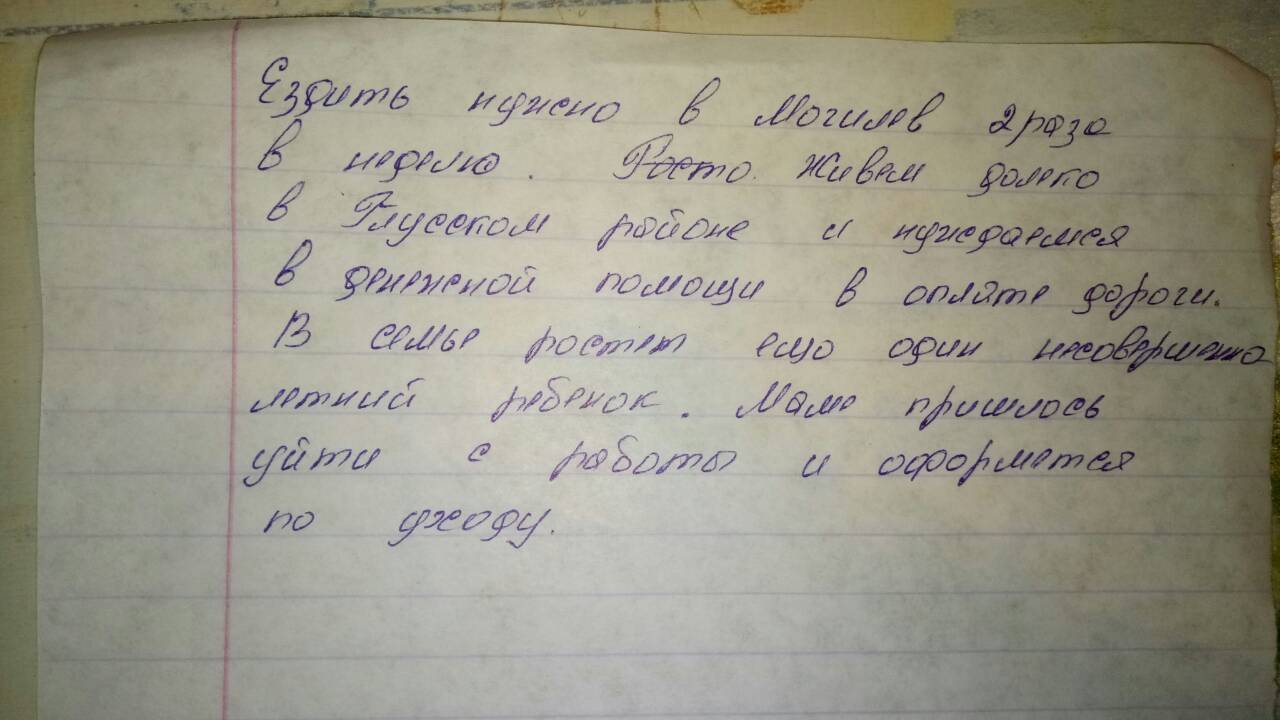 Ездить нужно в Могилев 2 раза
в неделю. Живем далеко
в Глусском районе и нуждаемся
в денежной помощи в оплате дороги.
В семье ростет ещо один несовершенно
летний ребенок. Маме пришлось
уйти с работы и оформется
по уходу.